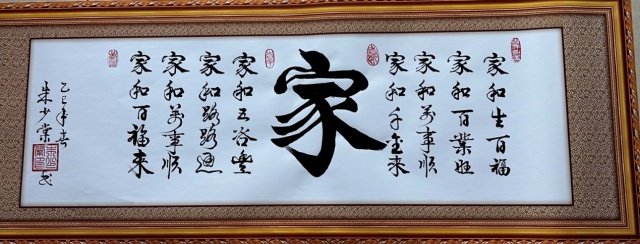 家和生百福
家和百業旺
家和萬事順
家和千金來
家
家和五谷豐
家和路路通
家和萬事順
家和百福來
乙巳年春
朱少棠
书